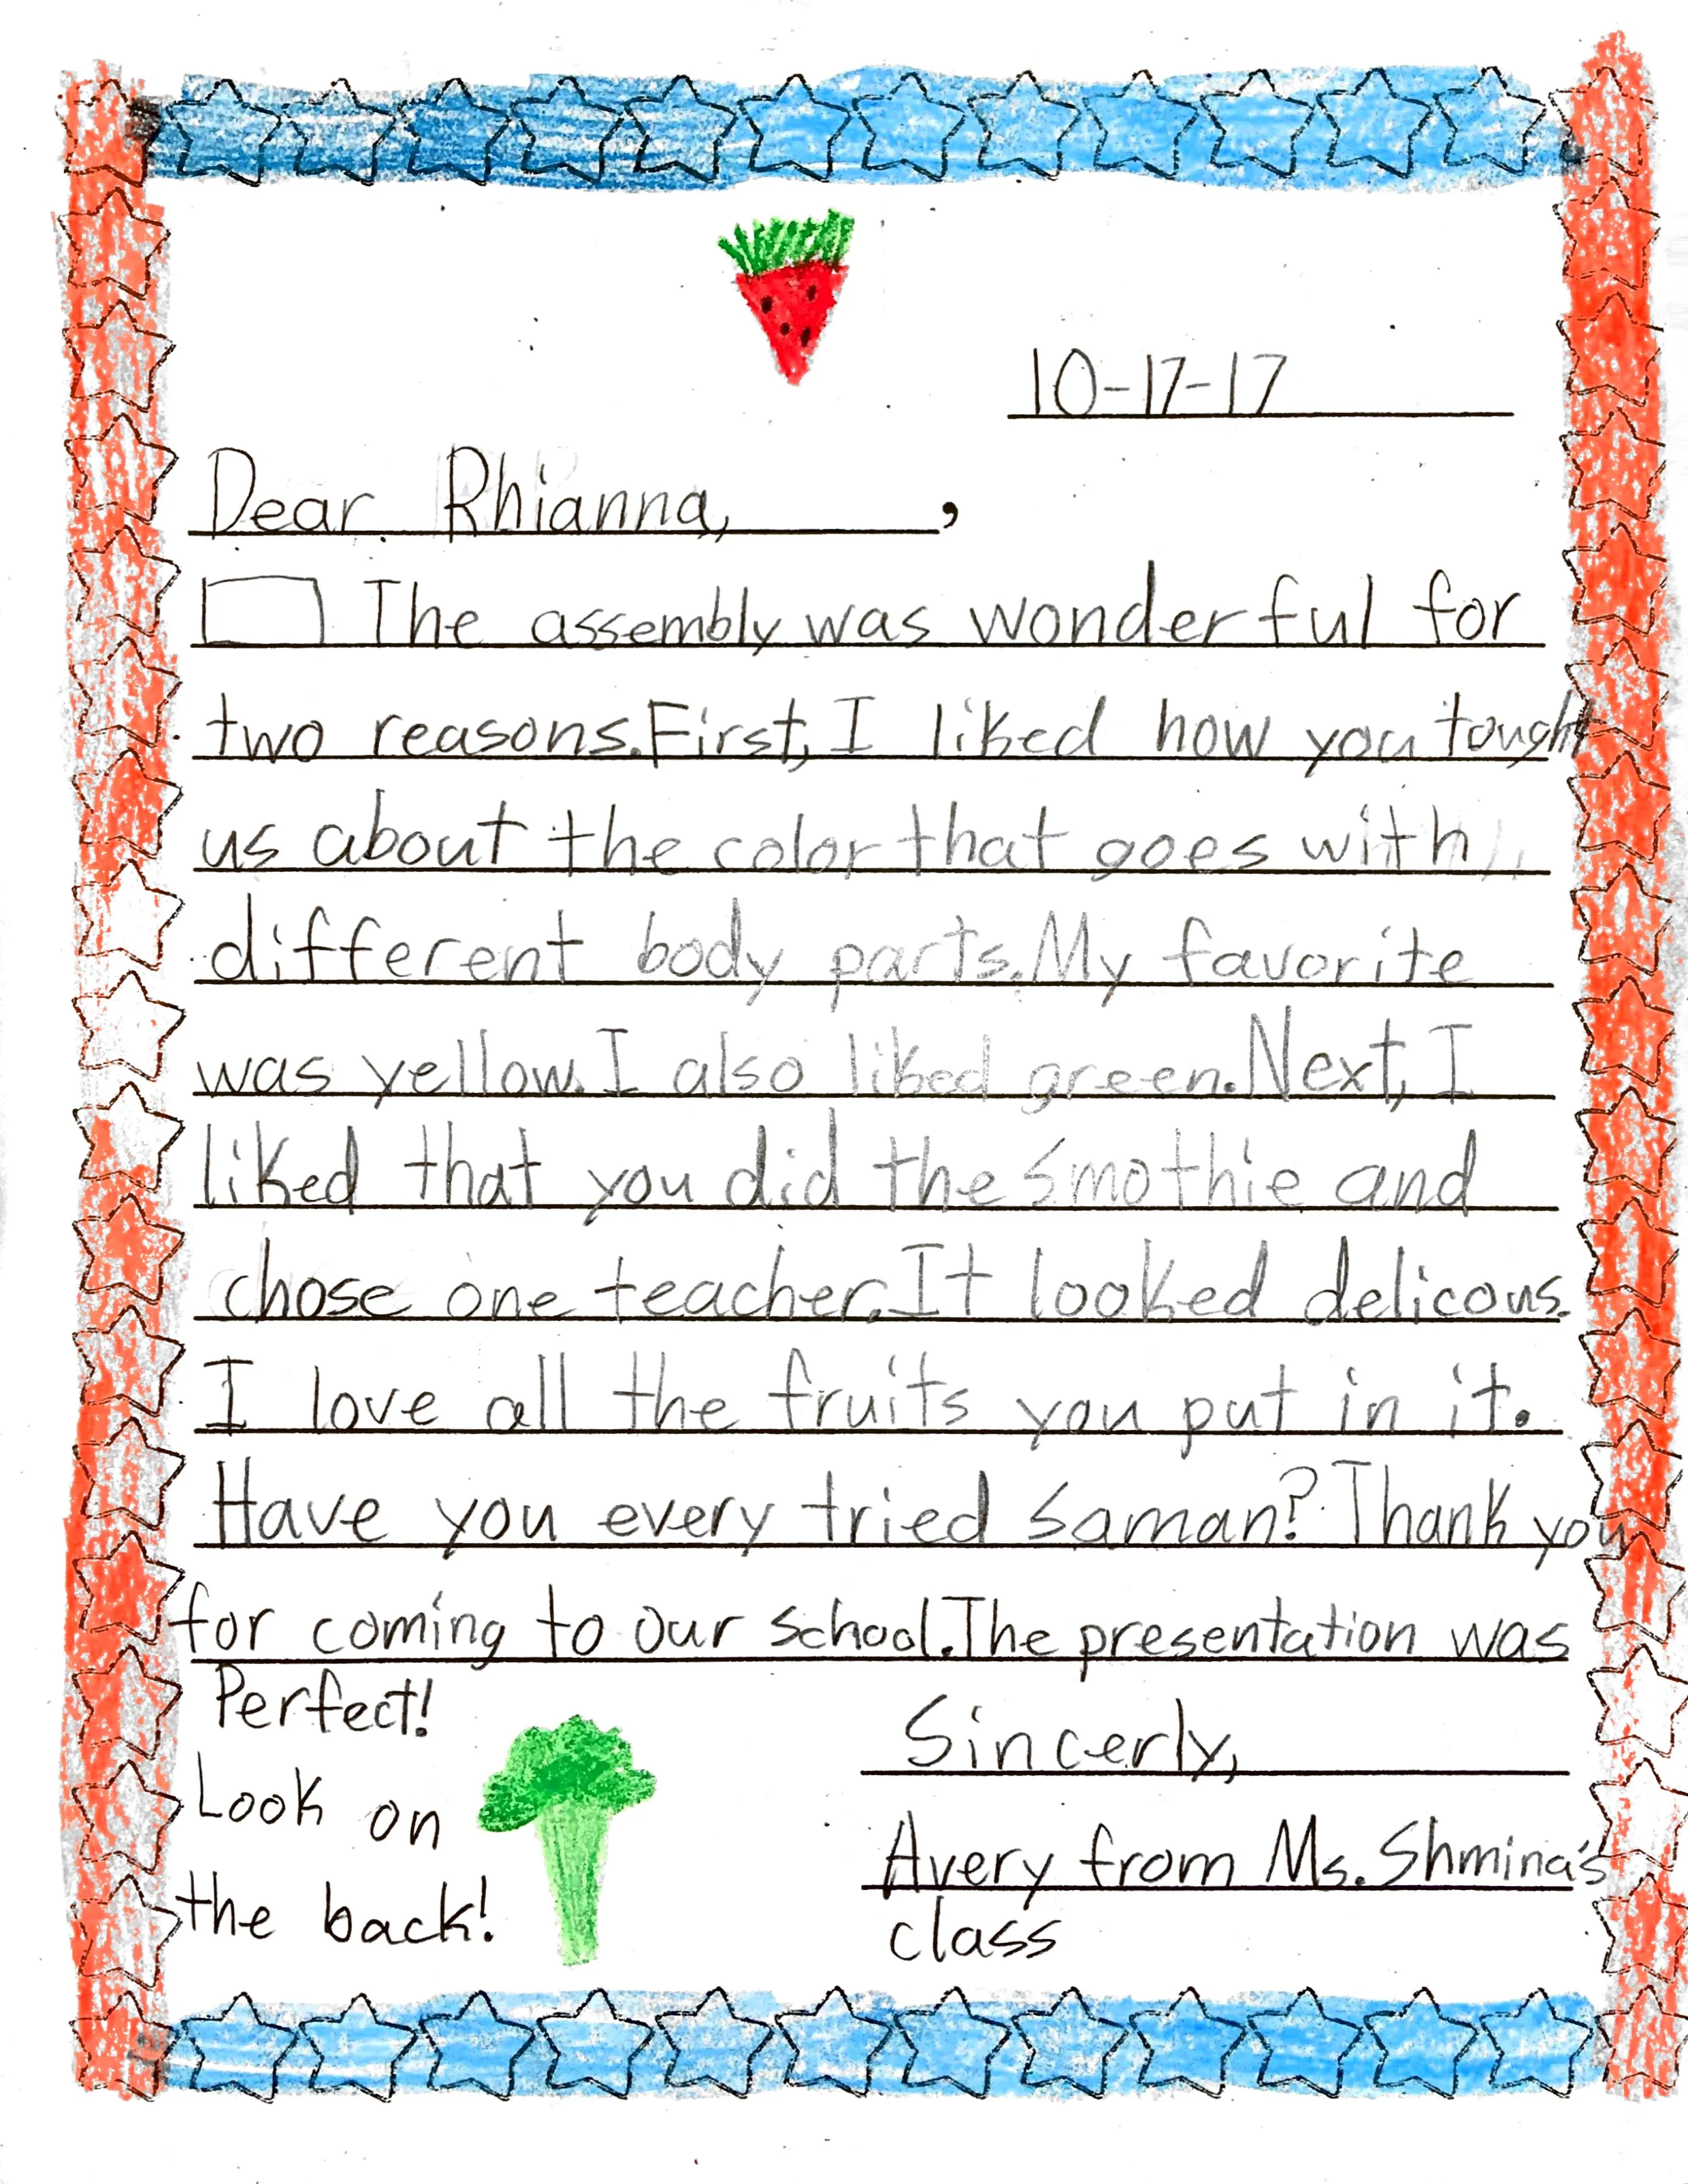 10-17-17
Dear Rhianna, ,
The assembly was wonderful for
two reasons. First, I liked how you tought
us about the color that goes with
different body parts. My favorite
was yellow. I also liked green. Next, I
liked that you did the smothie and
chose one teacher. It looked delicous.
I love all the fruits you put in it.
Have you every tried saman? Thank you
for coming to our school. The presentation was
Perfect!
Look on
the back!
Sincerly,
Avery from Ms. Shmina's
class